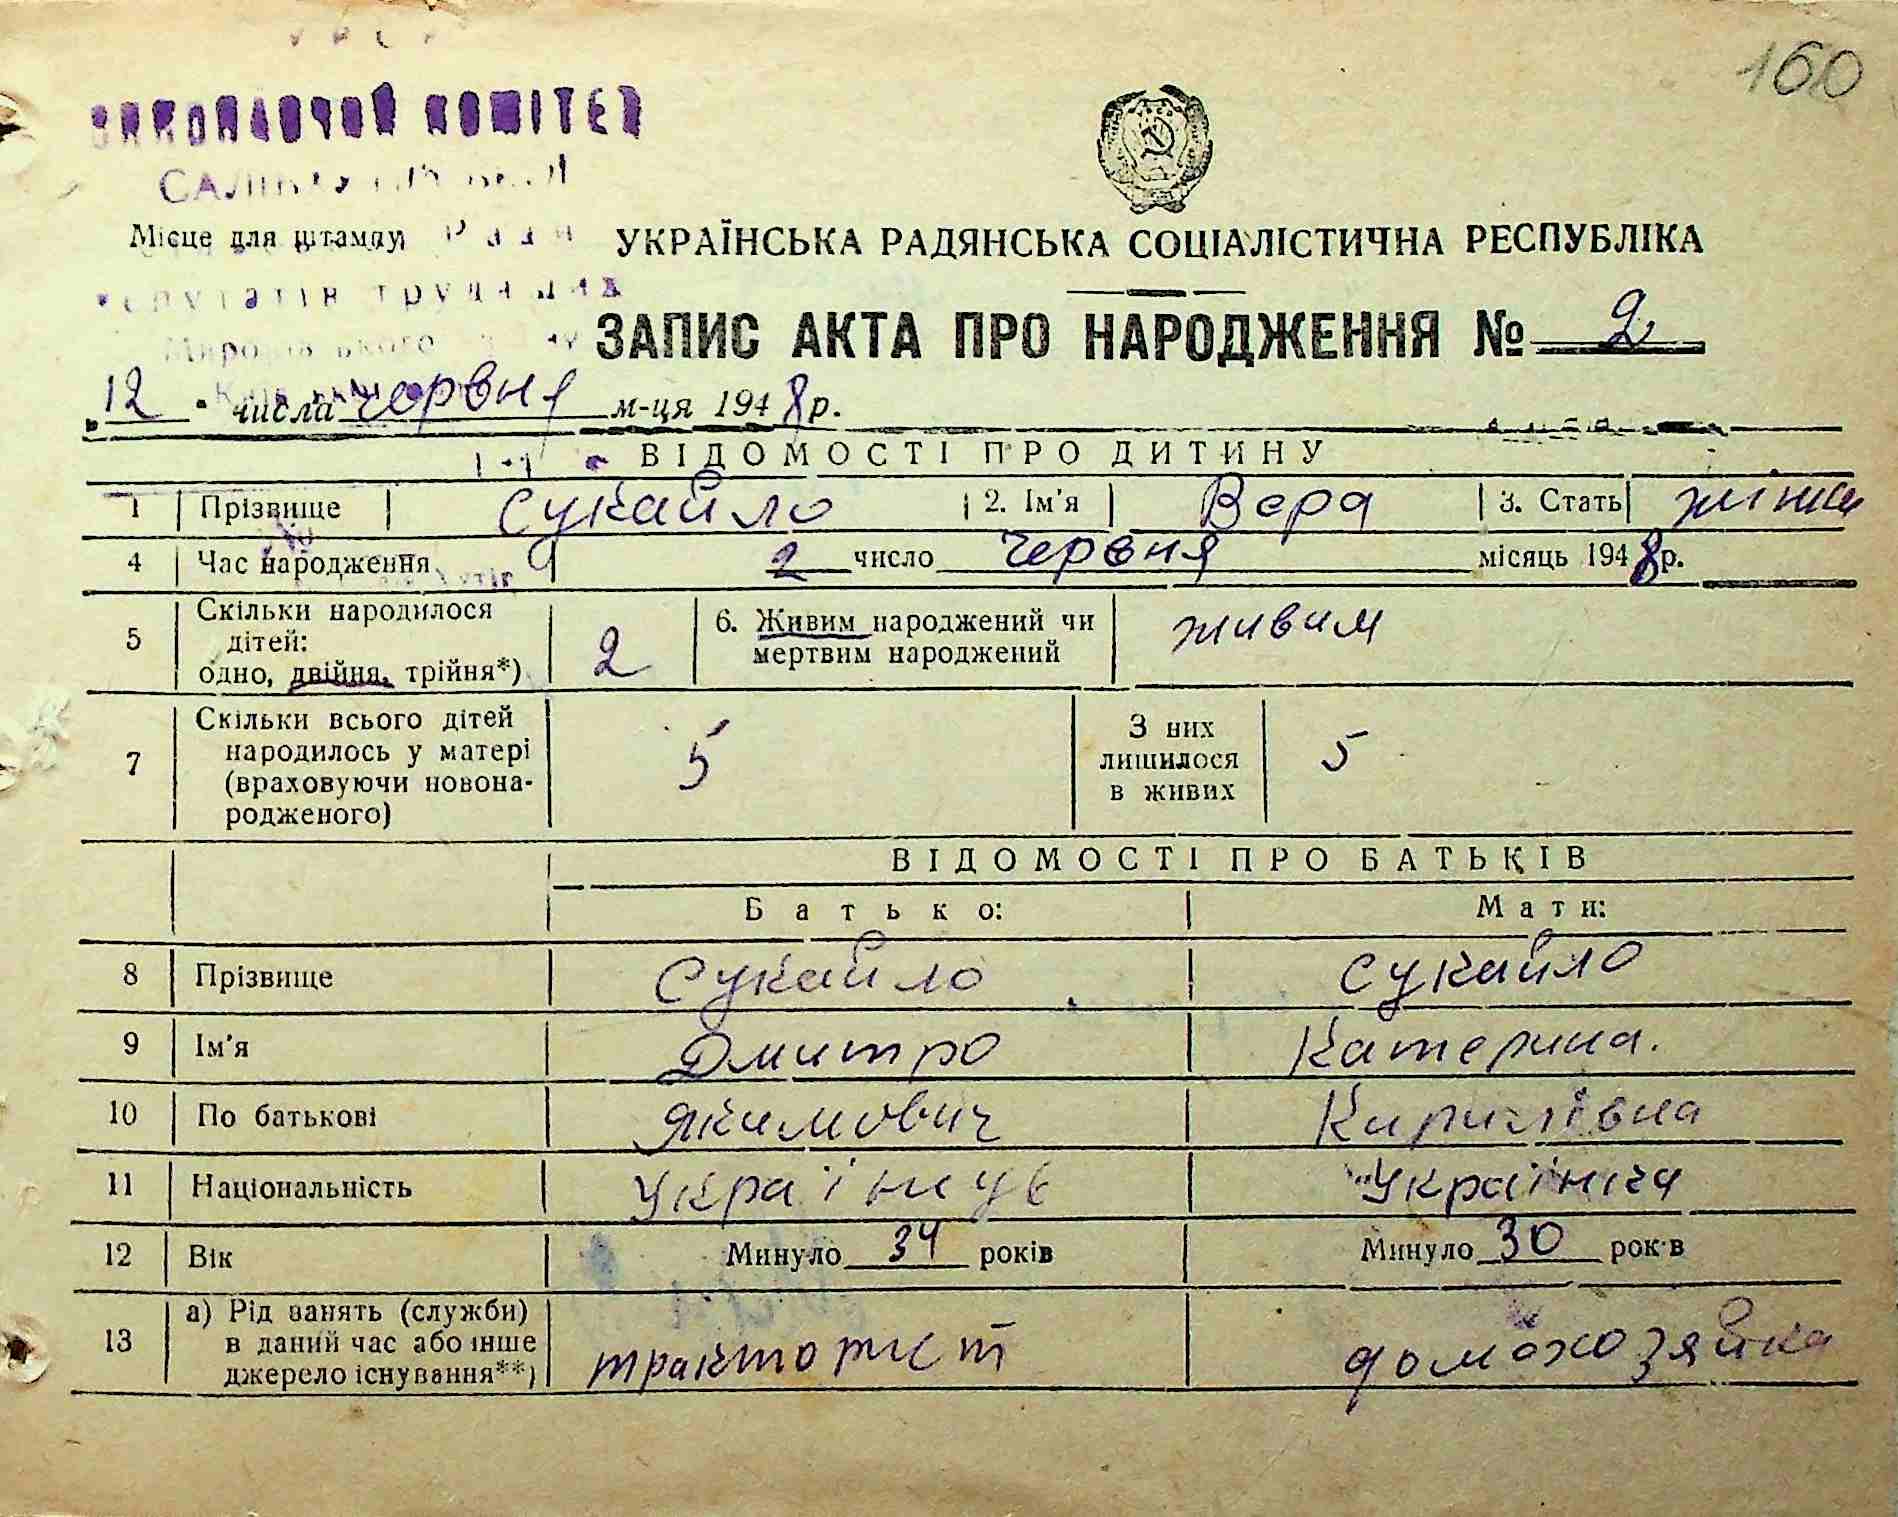 160
ВИКОНАВЧИЙ КОМІТЕТ
Місце для штампу
УКРАЇНСЬКА РАДЯНСЬКА СОЦІАЛІСТИЧНА РЕСПУБЛІКА
депутатів трудящих
ЗАПИС АКТА ПРО НАРОДЖЕННЯ № 2
„12" числа червня м-ця 1948 р.
ВІДОМОСТІ ПРО ДИТИНУ
1 Прізвище Сукайло 2. Ім'я Вера 3. Стать
4 Час народження 2 число Червня місяць 1948 р.
5 Скільки народилося дітей: одно, двійня, трійня*) 2 6. Живим народжений чи мертвим народжений живим
7 Скільки всього дітей народилось у матері (враховуючи новонародженого) 5 З них лишилося в живих 5
ВІДОМОСТІ ПРО БАТЬКІВ
Батько: Мати:
8 Прізвище Сукайло Сукайло
9 Ім'я Дмитро Катерина.
10 По батькові Якимович Кирилівна
11 Національність Українець Українка
12 Вік Минуло 34 років Минуло 30 років
13 а) Рід занять (служби) в даний час або інше джерело існування**) тракторист домохозяйка